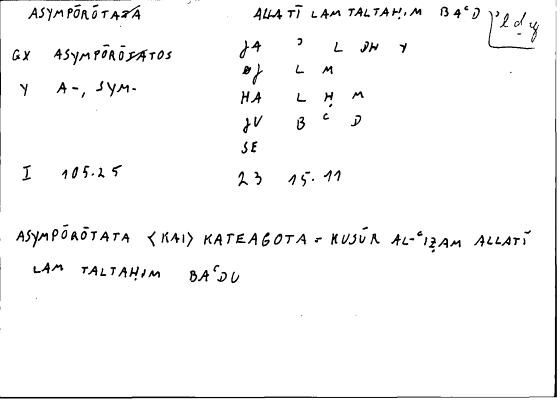 ASYMPŌRŌTAZA ALLATĪ LAM TALTAḤIM BAᶜD ʾldy
GX ASYMPŌRŌTATOS JA ʾ L DH Y
Y A-, SYM- JJ L M
HA L Ḥ M
JV B ᶜ D
SE
I 105.25 23 15.11
ASYMPŌRŌTATA <KAI> KATEAGOTA = KUSŪR AL-ᶜIẒAM ALLATĪ
LAM TALTAḤIM BAᶜDU